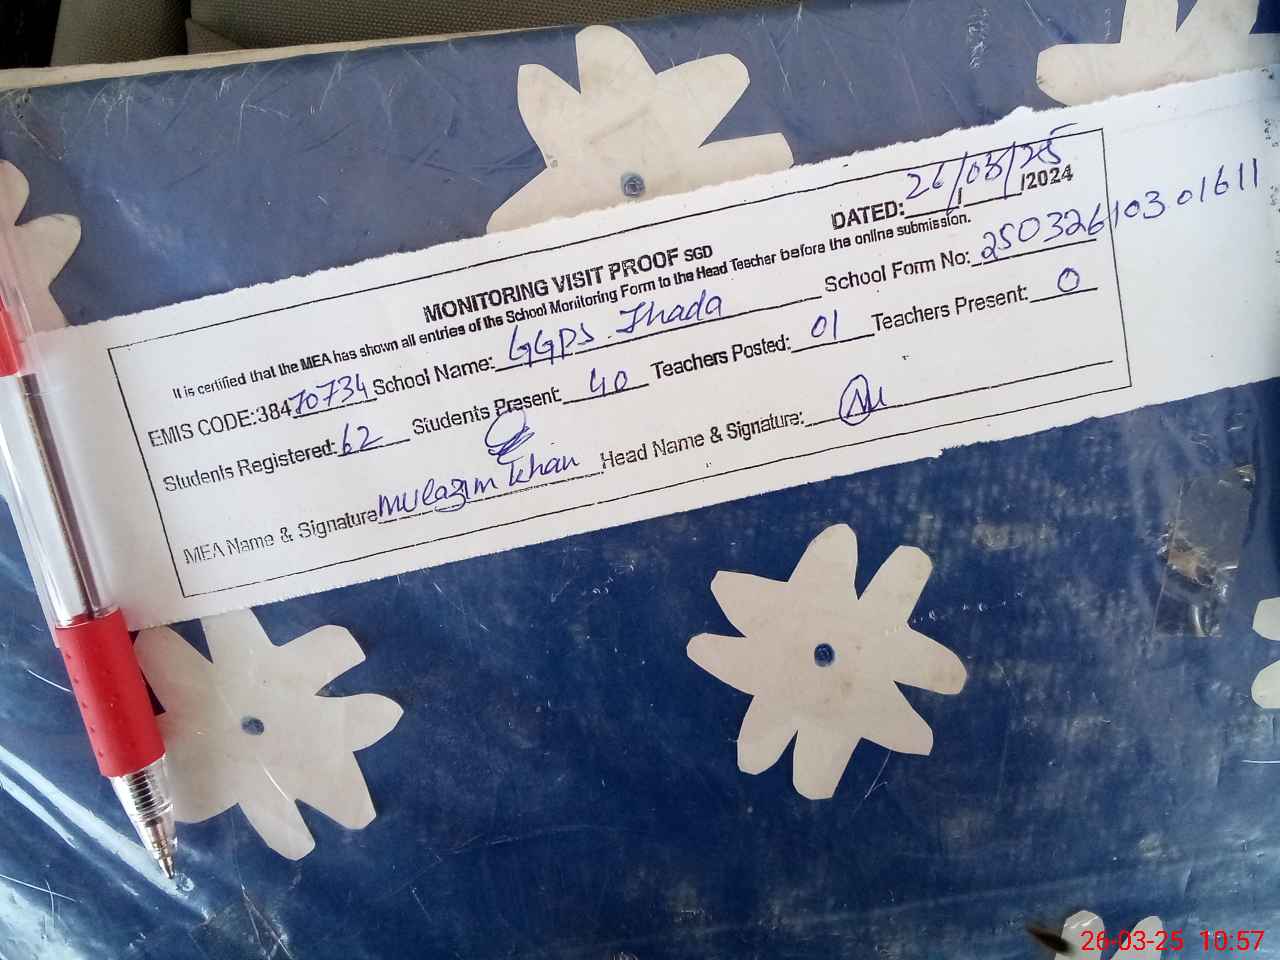 DATED: 26/03/25 /2024
MONITORING VISIT PROOF SGD
It is certified that the MEA has shown all entries of the School Monitoring Form to the Head Teacher before the online submission.
EMIS CODE:38470734 School Name: GGPS Jhada School Form No: 25032610301611
Students Registered: 62 Students Present: 40 Teachers Posted: 01 Teachers Present: 0
MEA Name & Signature Mulazim Khan Head Name & Signature:
26-03-25 10:57